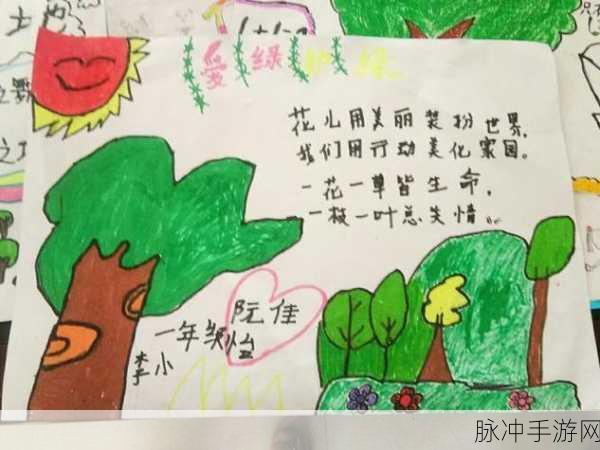 爱绿护绿
花儿用美丽装扮世界,
我们用行动美化家园。
一花一草皆生命,
一枝一叶总关情。
一年级
阮佳怡
李小
脉冲手游网